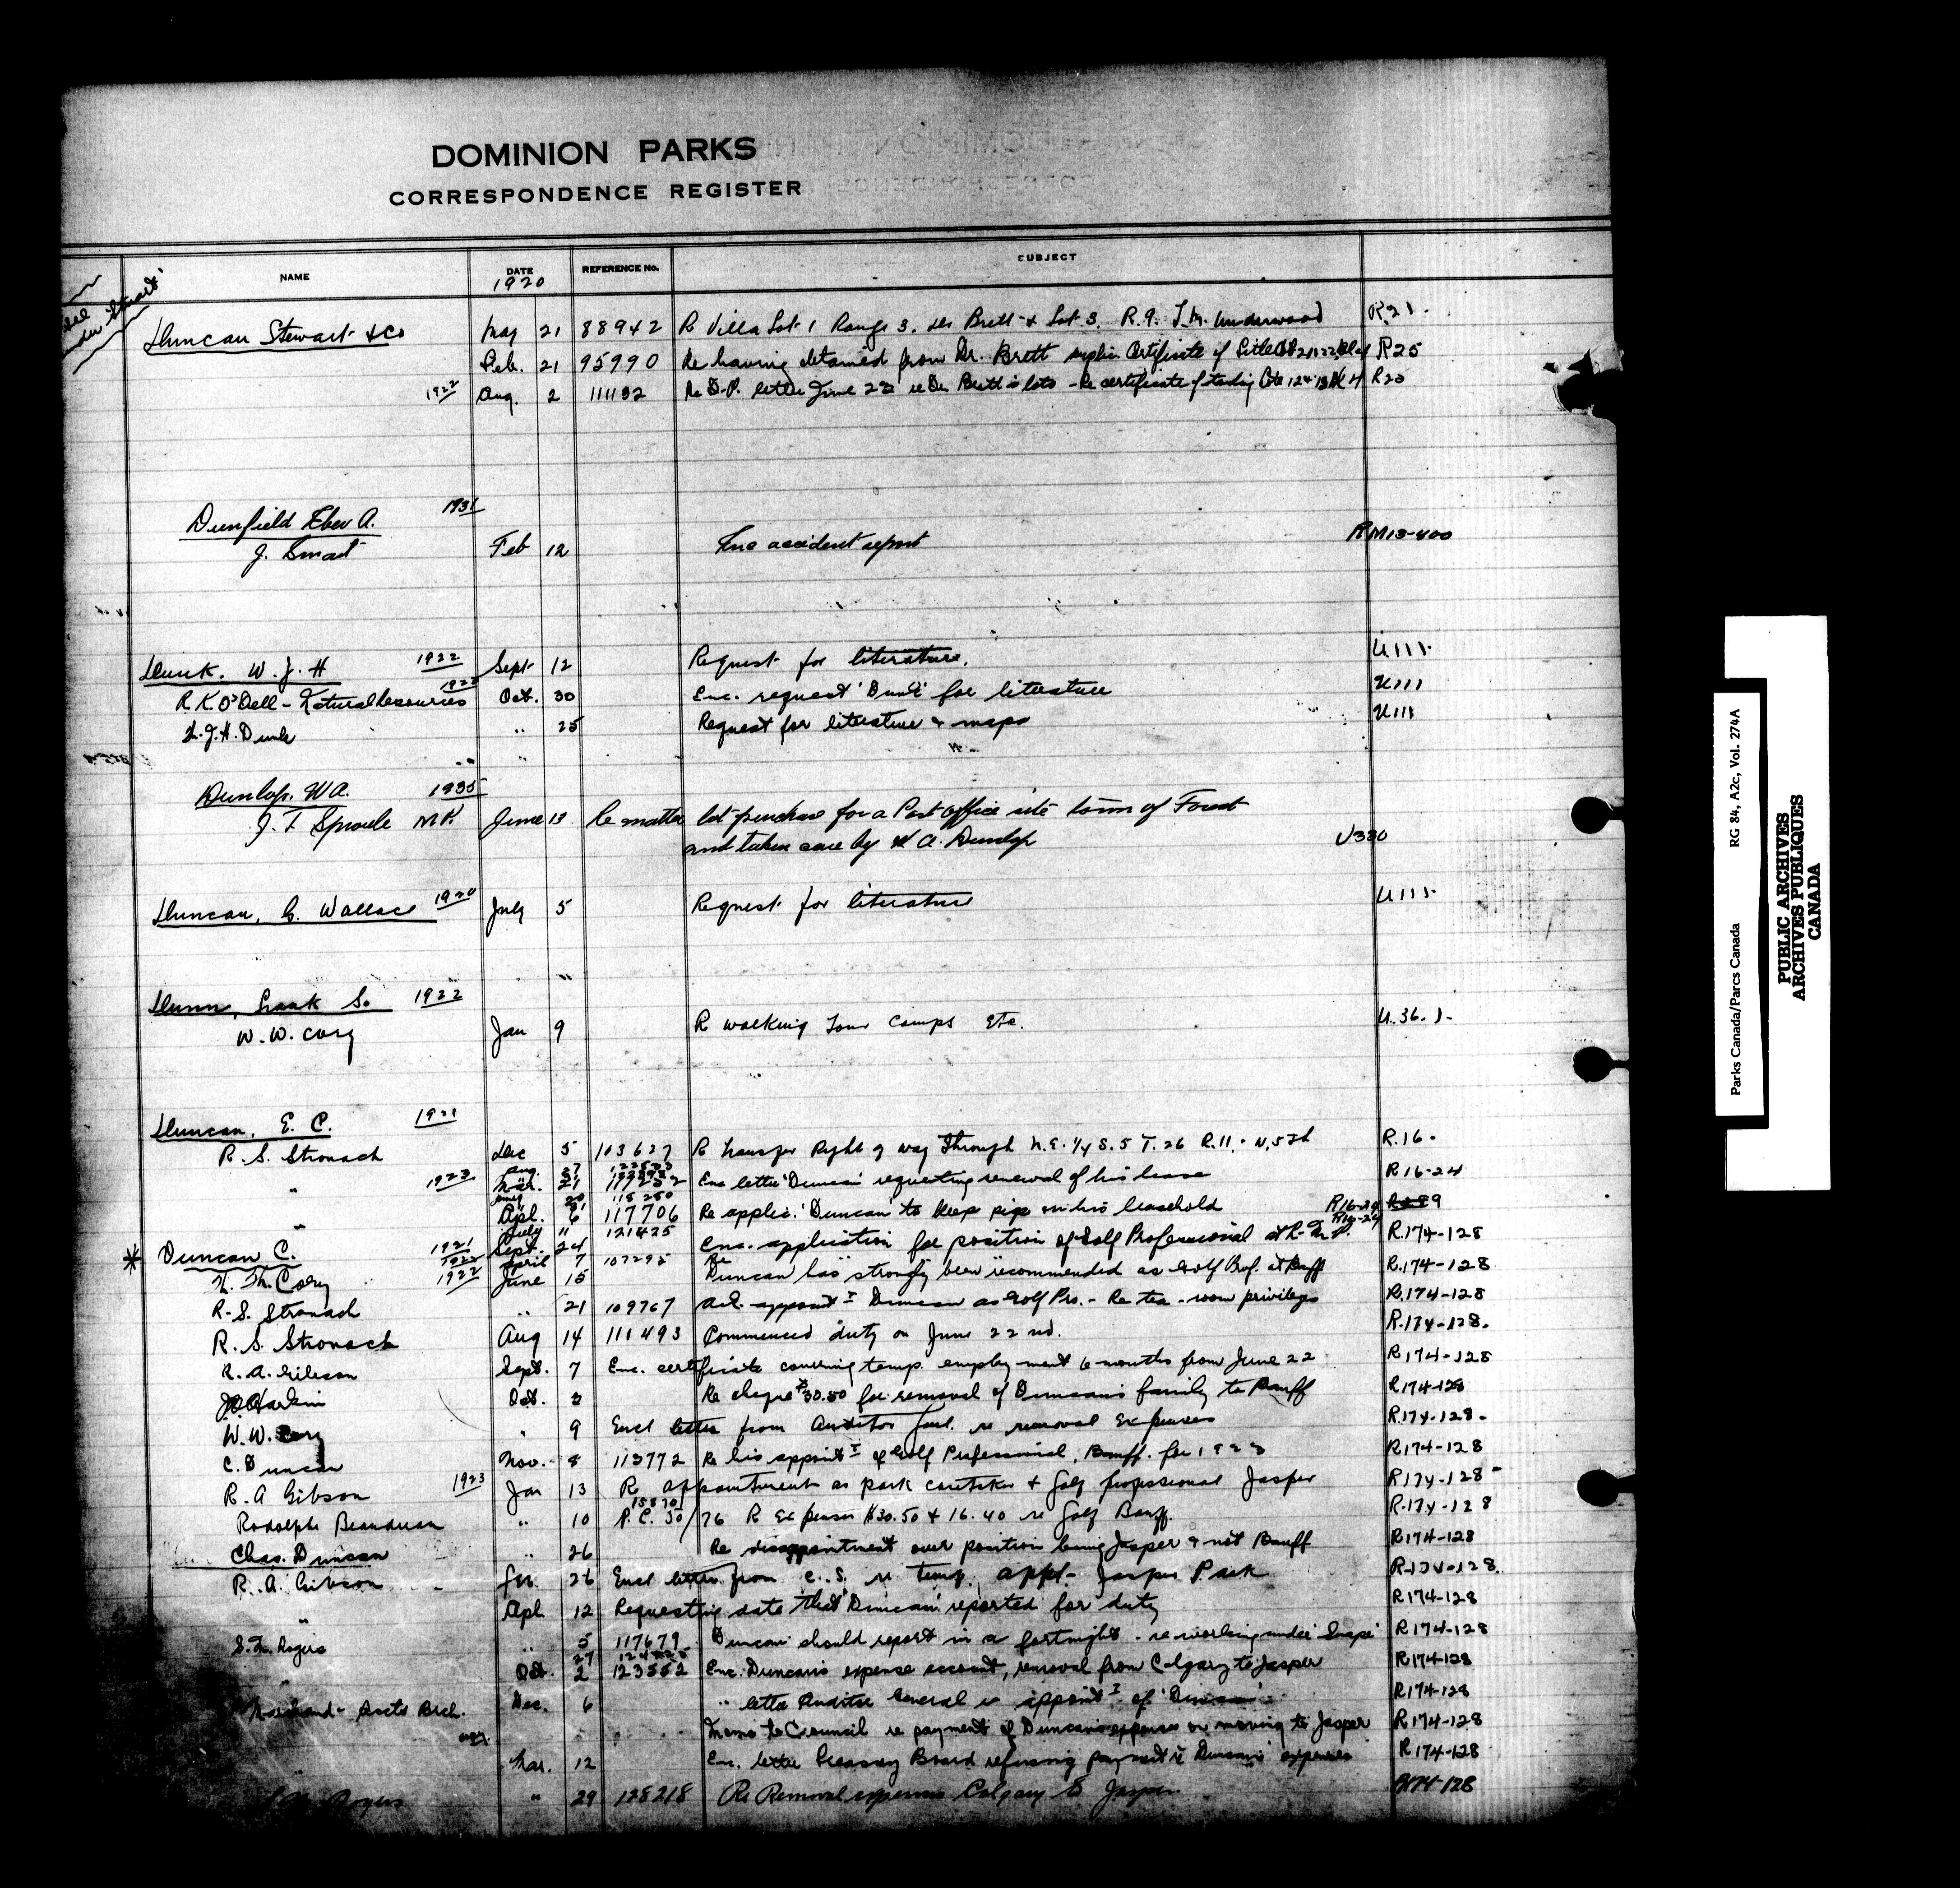 DOMINION PARKS
CORRESPONDENCE REGISTER
NAME DATE REFERENCE No. SUBJECT
1920
see under Stewart
Duncan Stewart & Co May 21 88942 R Villa Lot 1 Range 3. Brett & Lot 3. R.9. J.M. Underwood R.21.
Feb. 21 95990 Re having obtained from Dr. Brett Certificate of Title R25
1922 Aug. 2 111132 Re D.P. letter June 22 re Dr Brett's lots - Re certificate of R25
Dunfield Eber A. 1931
J. Smart Feb 12 Enc accident report RM13-400
Dunk. W. J. H 1922 Sept 12 Request for literature. U111.
R.K. O'Dell - Natural Resources 1922 Oct. 30 Enc. request 'Dunk' for literature U111
W.J.H. Dunk " 25 Request for literature & maps U111
Dunlop. W A. 1935
J. T Sproule M.P. June 13 Re matter lot purchase for a Post office site town of Forest
and taken care by W A. Dunlop U330
Duncan, G. Wallace 1920 July 5 Request for literature U111.
Dunn, S. 1922
W. W. Cory Jan 9 R walking Tour Camps Etc. U.36.1.
Duncan, E. C. 1921
R. S. Stronach Dec 5 103627 R transfer Right of way Through N.E. 1/4 S. 5 T. 26 R. 11. W, 5th R.16.
Aug. 27
" 1923 Mar. 21 Enc letter 'Duncan' requesting renewal of his lease R16-24
20 118250
" Apl. 6 117706 Re applic. 'Duncan' to keep pigs on his leasehold R16-24
July 11 121425 R16-24
* Duncan C. 1921 Sept. 24 Enc. application for position of Golf Professional at R.M.P. R.174-128
1922 April 7 107295 Re
W. W. Cory 1922 June 15 Duncan has strongly been recommended as Golf Prof. at Banff R.174-128
R. S. Stronach " 21 109767 Duncan as Golf Pro. - Re tea-room privileges R.174-128
R. S. Stronach Aug 14 111493 Commenced duty on June 22 nd. R.174-128.
R. A. Gibson Sept. 7 Enc. certificate covering temp. employment 6 months from June 22 R174-128
J B Harkin Oct. 3 Re cheque $30.50 for removal of Duncan's family to Banff R174-128
W. W. Cory " 9 Encl letter from Auditor Genl. re removal Expenses R.174-128.
C. Duncan Nov. 8 113772 Re his appoint't of Golf Professional, Banff. for 1923 R174-128
R. A Gibson 1923 Jan 13 R appointment as park caretaker & Golf professional Jasper R174-128
15870
Rodolphe Beaudreau " 10 P. C. 50/76 R Expenses $30.50 & 16.40 re Golf Banff. R.174-128
Chas. Duncan " 26 Re disappointment over position being Jasper & not Banff R174-128
R. A. Gibson 26 Encl letter from C. S. re temp. appt- Jasper Park R-174-128.
" Apl. 12 Requesting date that 'Duncan' reported for duty R174-128
S. M. Rogers " 5 117679 Duncan should report in a fortnight - re working under 'Snape' R174-128
27
" Oct. 2 123552 Enc. Duncan's expense account, removal from Calgary to Jasper R174-128
Dec. 6 " letter Auditor General re appoint't of 'Duncan' R174-128
Memo to Council re payment of Duncan's expenses on moving to Jasper R174-128
" Mar. 12 Enc. letter Treasury Board refusing payment re Duncan's expenses R174-128
Rogers " 29 128218 Re Removal expenses Calgary to Jasper R174-128
Parks Canada/Parcs Canada RG 84, A2c, Vol. 274A
PUBLIC ARCHIVES
ARCHIVES PUBLIQUES
CANADA